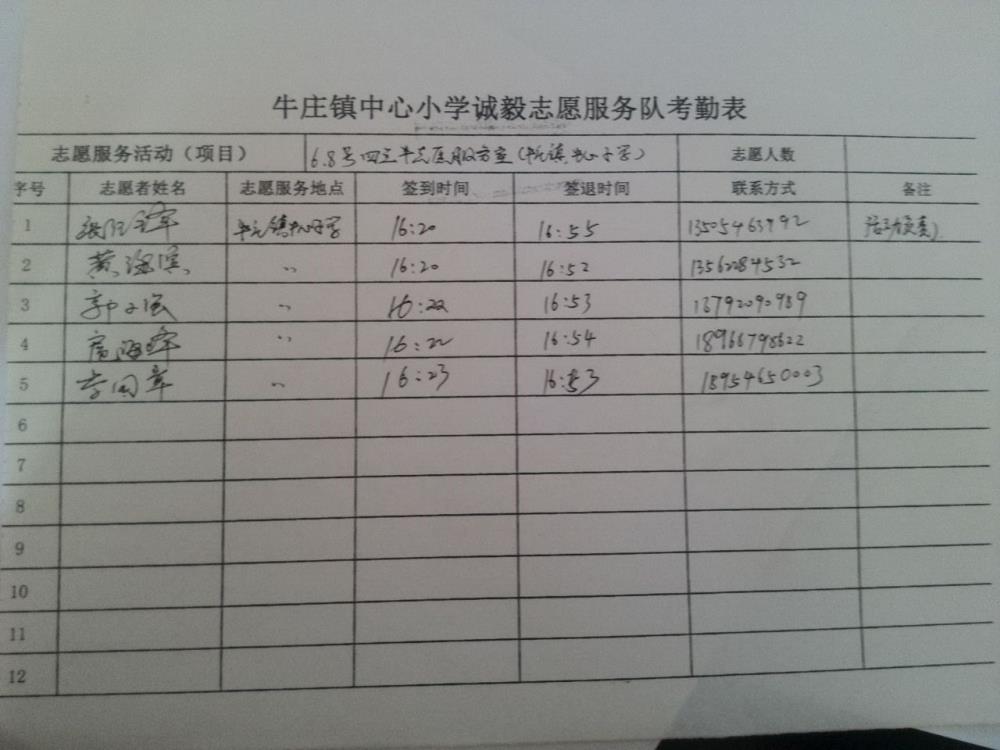 牛庄镇中心小学诚毅志愿服务队考勤表
志愿服务活动（项目） 6.8号四点半志愿服务室（牛庄镇中心小学） 志愿人数
序号 志愿者姓名 志愿服务地点 签到时间 签退时间 联系方式 备注
1 牛庄镇中心小学 16:20 16:55 13505463992
2 黄海滨 〃 16:20 16:52 13562284532
3 郭 〃 16:22 16:53 13792090989
4 〃 16:22 16:54 18966798622
5 李国章 〃 16:23 16:53 18954650003
6
7
8
9
10
11
12